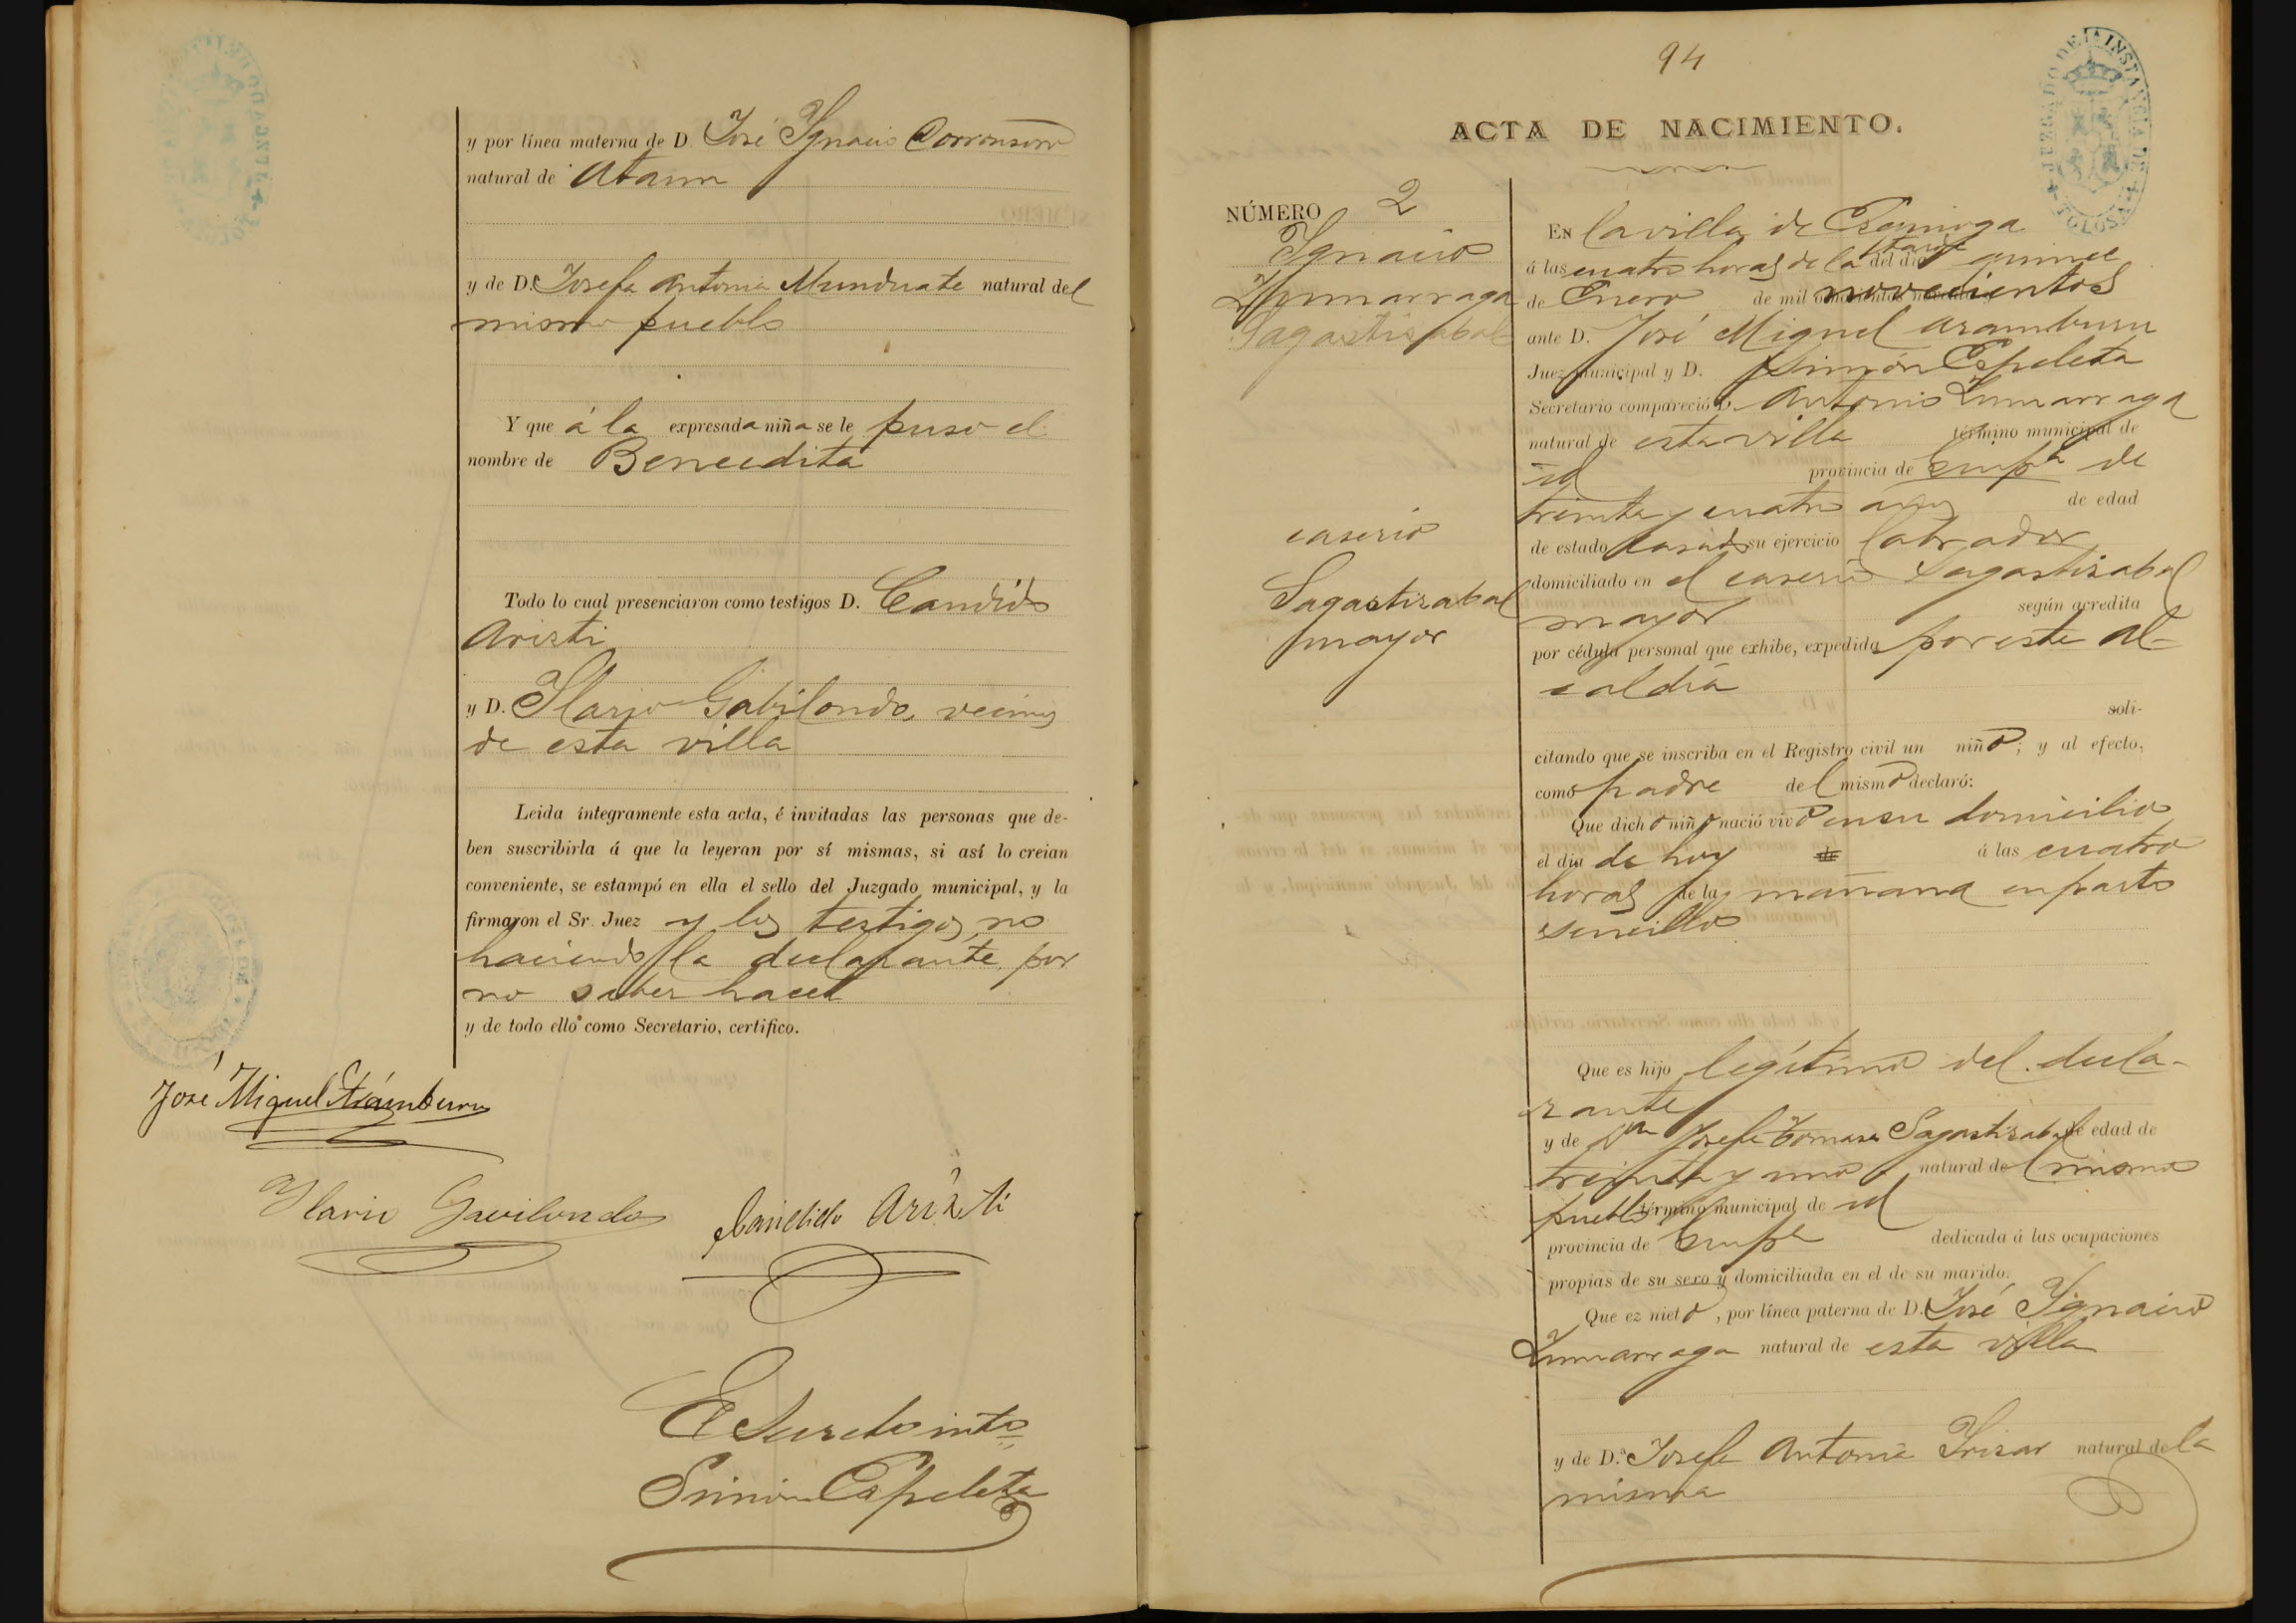 y por línea materna de D. José Ygnacio Dorronsoro
natural de Ataun
y de D.ª Josefa Antonia Munduate natural del
mismo pueblo
Y que á la expresada niña se le puso el
nombre de Benedita
Todo lo cual presenciaron como testigos D. Candido
Arizti
y D. Ylario Gabilondo, vecinos
de esta villa
Leida íntegramente esta acta, é invitadas las personas que de-
ben suscribirla á que la leyeran por sí mismas, si así lo creian
conveniente, se estampó en ella el sello del Juzgado municipal, y la
firmaron el Sr. Juez y los testigos, no
haciendo la declarante por
no saber hacer
y de todo ello como Secretario, certifico.
José Miguel Arámburu
Ylario Gavilondo Candido Arizti
El Secreto into
Simón Espeleta
94
ACTA DE NACIMIENTO.
JUZGADO DE 1ª INSTANCIA DE TOLOSA
NÚMERO 2
Ygnacio
Zumarraga
Sagastizabal
caserio
Sagastizabal
mayor
En la villa de Ezquioga
á las cuatro horas de la tarde del dia quince
de Enero de mil novecientos
ante D. José Miguel Aramburu
Juez municipal y D. Simón Espeleta
Secretario compareció D. Antonio Zumarraga
natural de esta villa término municipal de
id provincia de Guipª de
treinta y cuatro años de edad
de estado casado su ejercicio labrador
domiciliado en el caserio Sagastizabal
mayor según acredita
por cédula personal que exhibe, expedida por este Al-
caldía
soli-
citando que se inscriba en el Registro civil un niño; y al efecto,
como padre del mismo declaró:
Que dicho niño nació vivo en su domicilio
el dia de hoy á las cuatro
horas de la mañana en parto
sencillo
Que es hijo legítimo del decla-
rante
y de Dª Josefa Tomasa Sagastizabal de edad de
treinta y uno natural del mismo
pueblo término municipal de id
provincia de Guipª dedicada á las ocupaciones
propias de su sexo y domiciliada en el de su marido.
Que es nieto, por línea paterna de D. José Ygnacio
Zumarraga natural de esta villa
y de D.ª Josefa Antonia Yrizar natural de la
misma